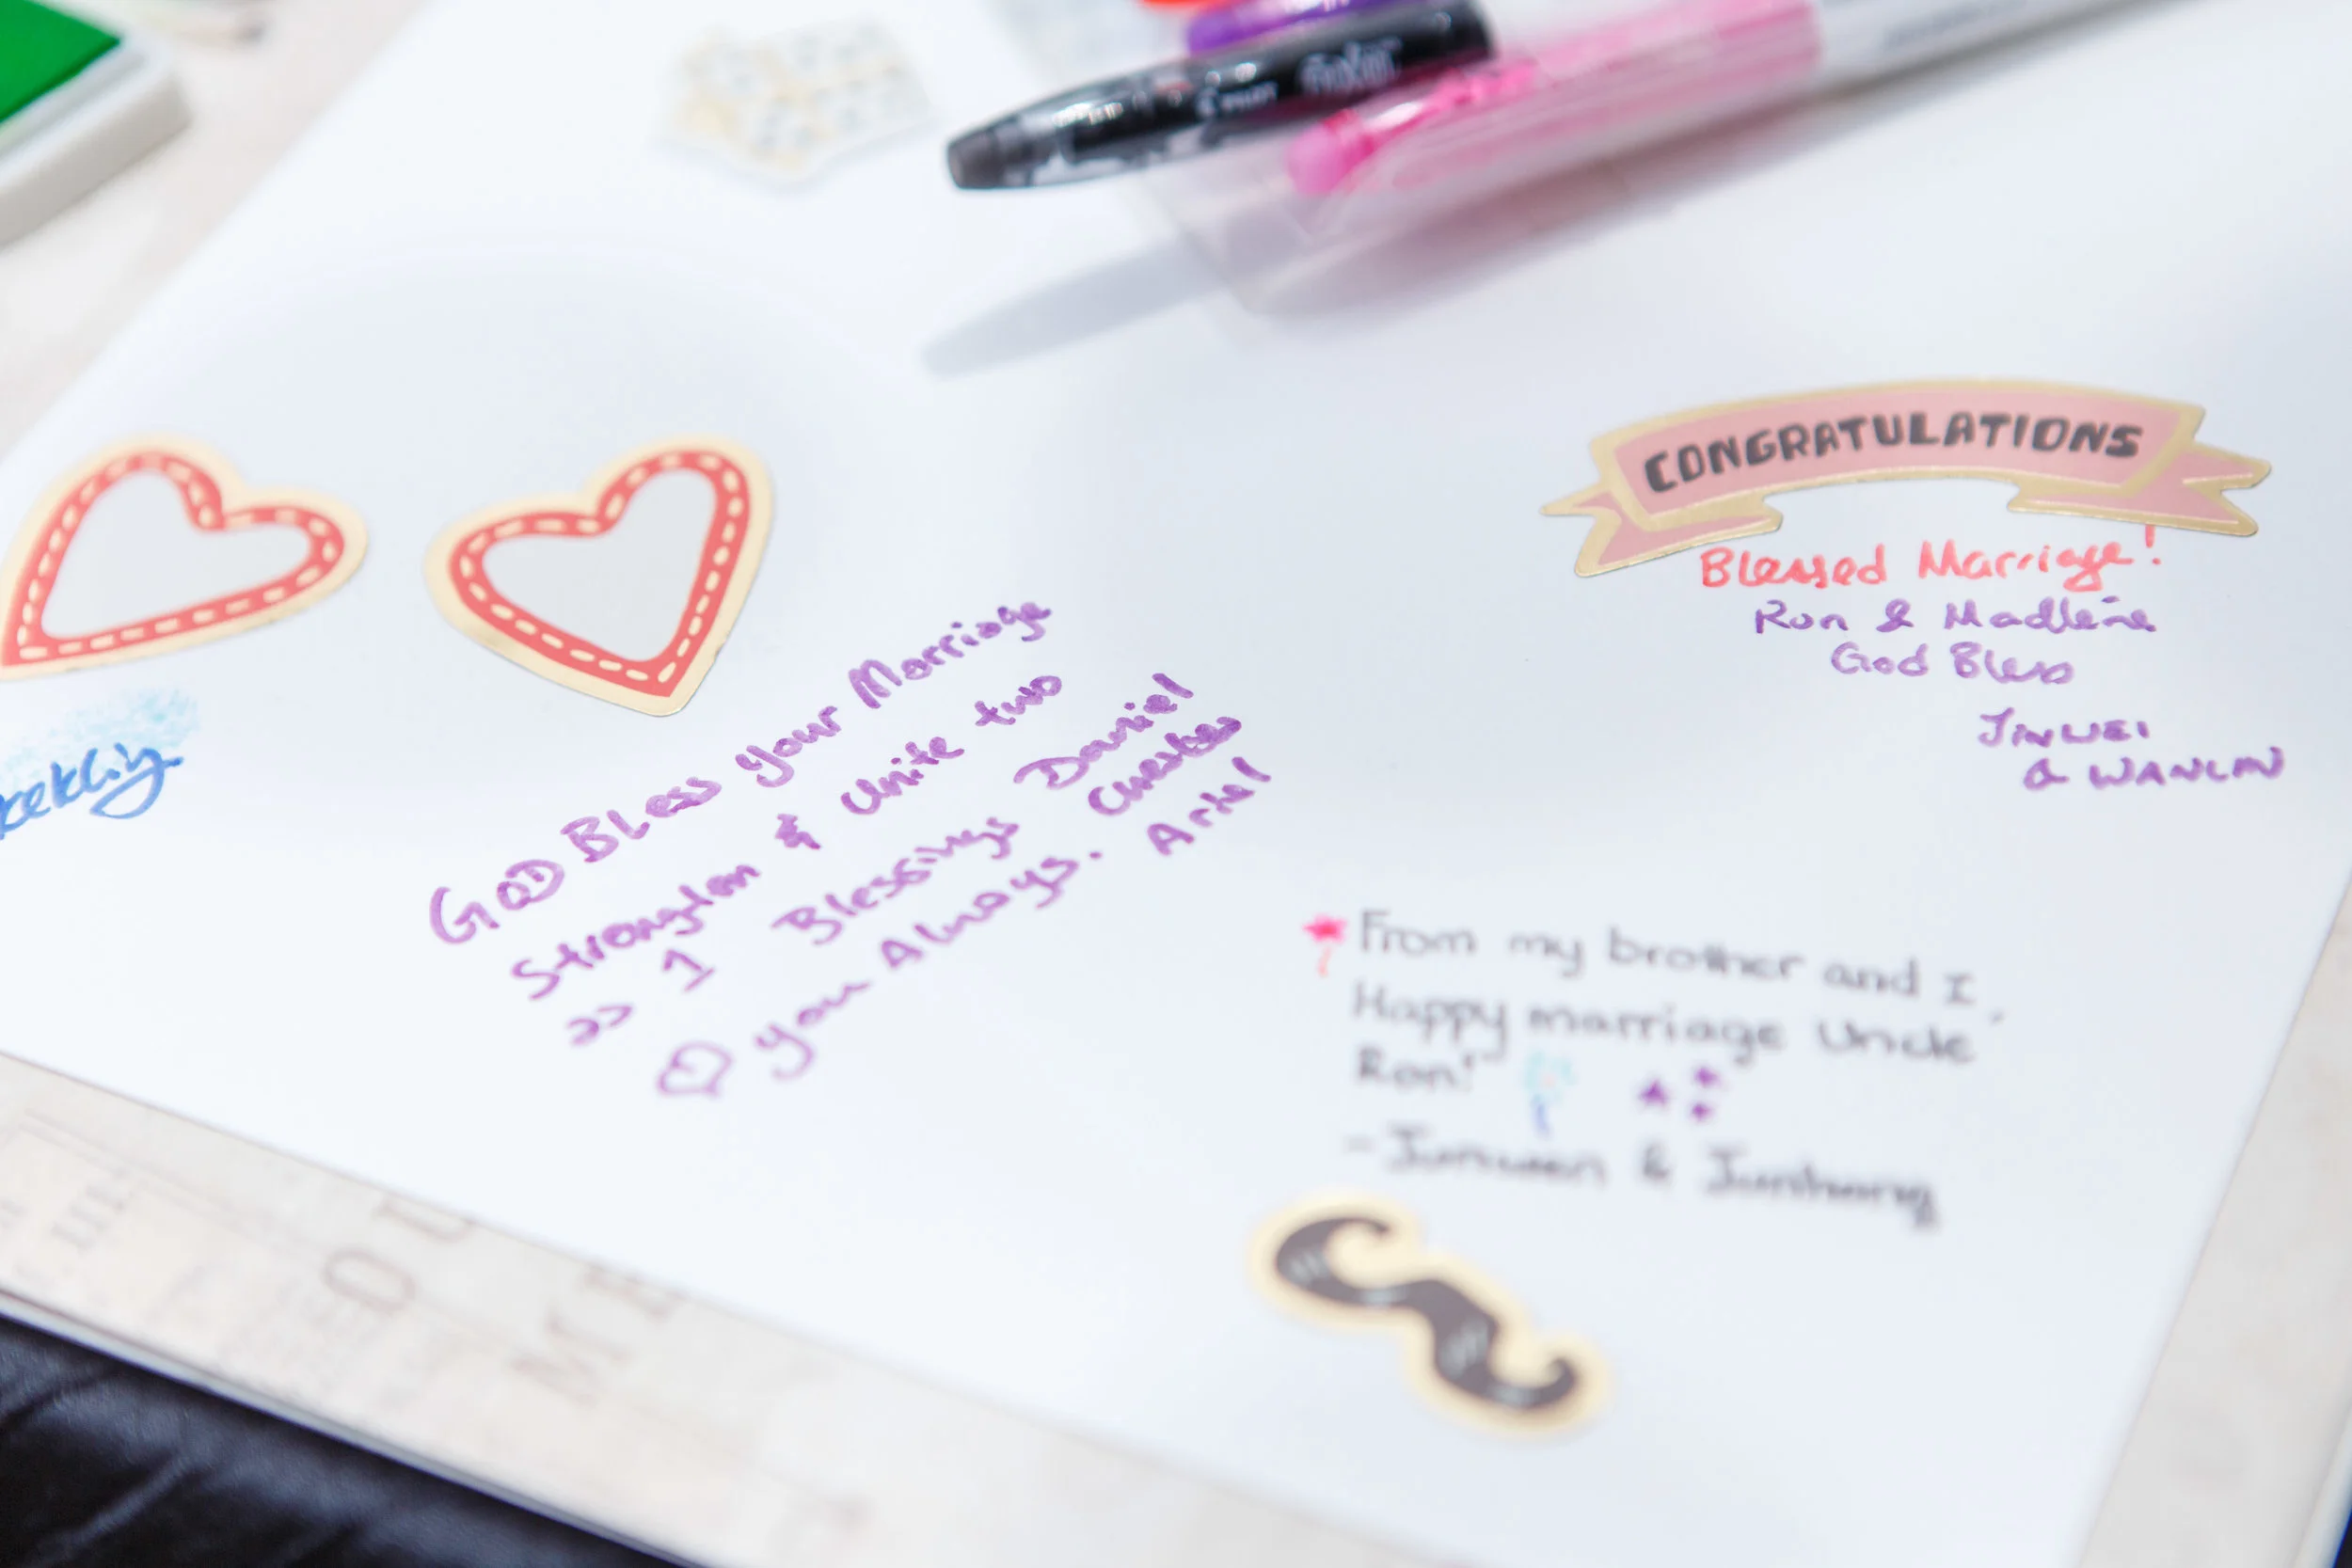 PILOT FriXion
CONGRATULATIONS
Blessed Marriage!
Ron & Madleine
God Bless
JINWEI
& WANLIN
GOD Bless your Marriage
Strengten & Unite two
>> 1 Blessings Daniel
you Always. Ariel
From my brother and I,
Happy marriage Uncle
Ron!
- Junwen & Junhong
OU
ME